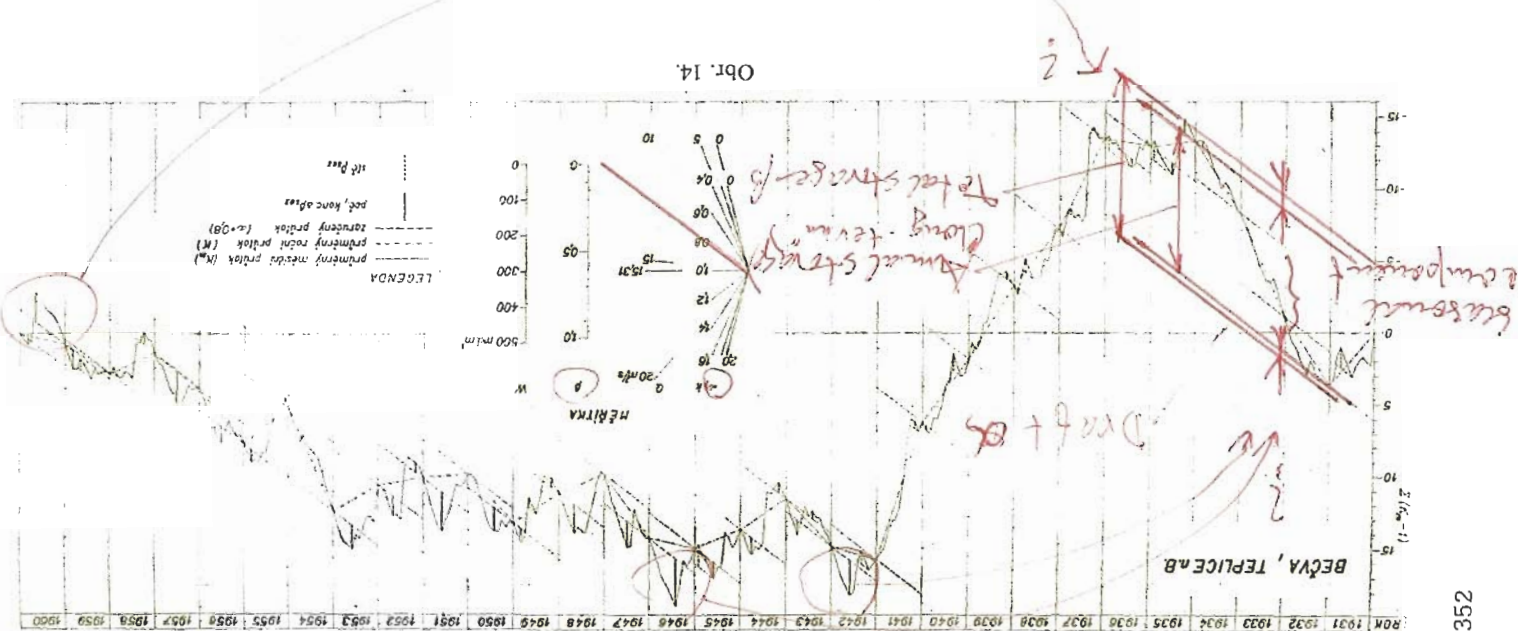 352
ROK 1931 1932 1933 1934 1935 1936 1937 1938 1939 1940 1941 1942 1943 1944 1945 1946 1947 1948 1949 1950 1951 1952 1953 1954 1955 1956 1957 1958 1959 1960
BEČVA, TEPLICE n.B.
-15
-10
-5
0
5
10
15
Draft
seasonal
component
Total storage β
(long-term)
Annual storage
?
?
MĚŘÍTKA
α, k
Q
20 m³/s
β
W
20
16
1,4
1,2
1,0
0,8
0,6
0,4
0
0
5
10
15
15,31
1,0
0,5
0
500 mil m³
400
300
200
100
0
LEGENDA
průměrný měsíční průtok (Km)
průměrný roční průtok (K)
zaručený průtok (α=0,8)
poč., konc a βsez
Obr. 14.